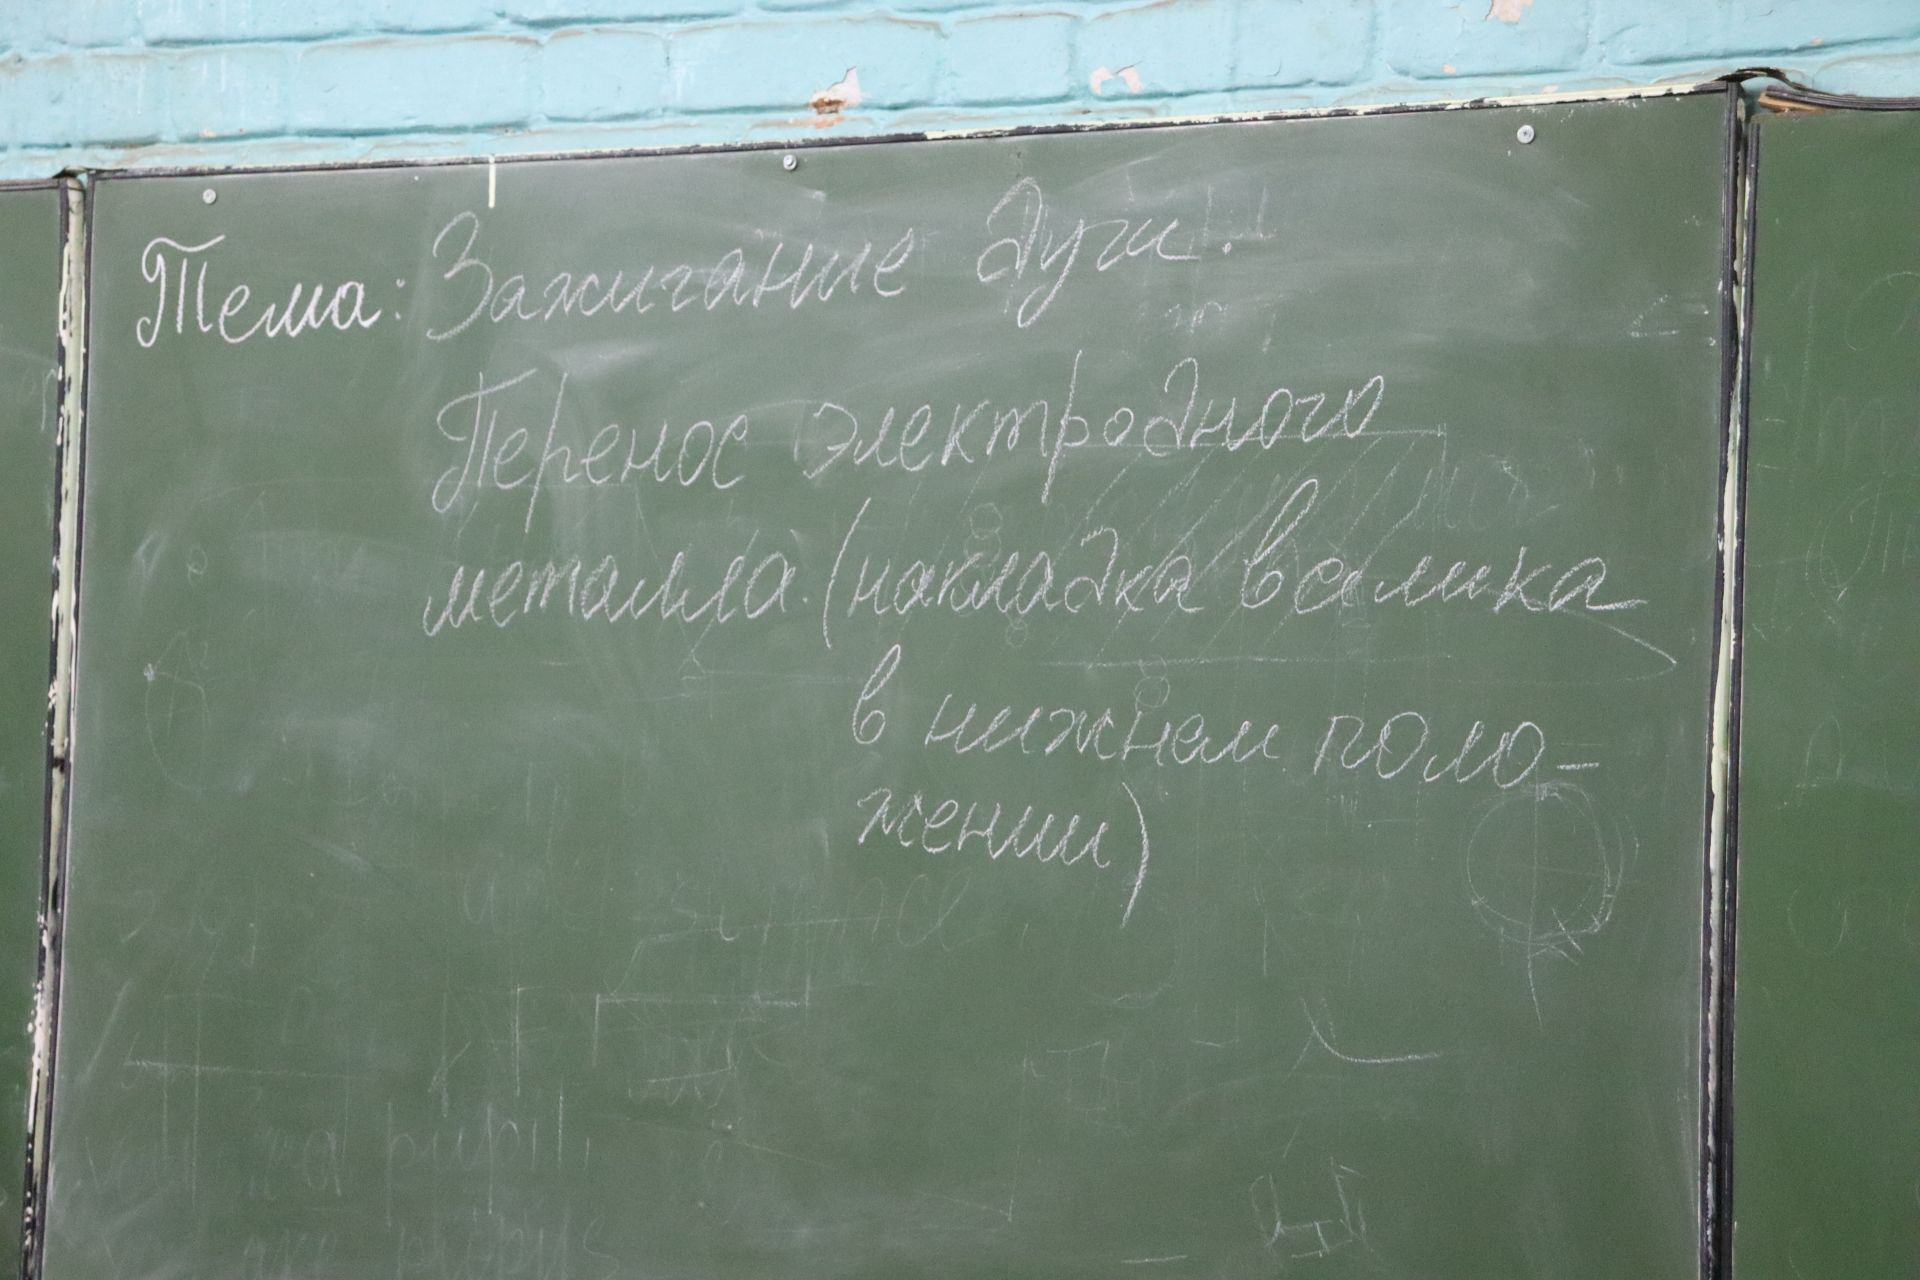 Тема: Зажигание дуги.
Перенос электродного
металла. (накладка валика
в нижнем поло-
жении)